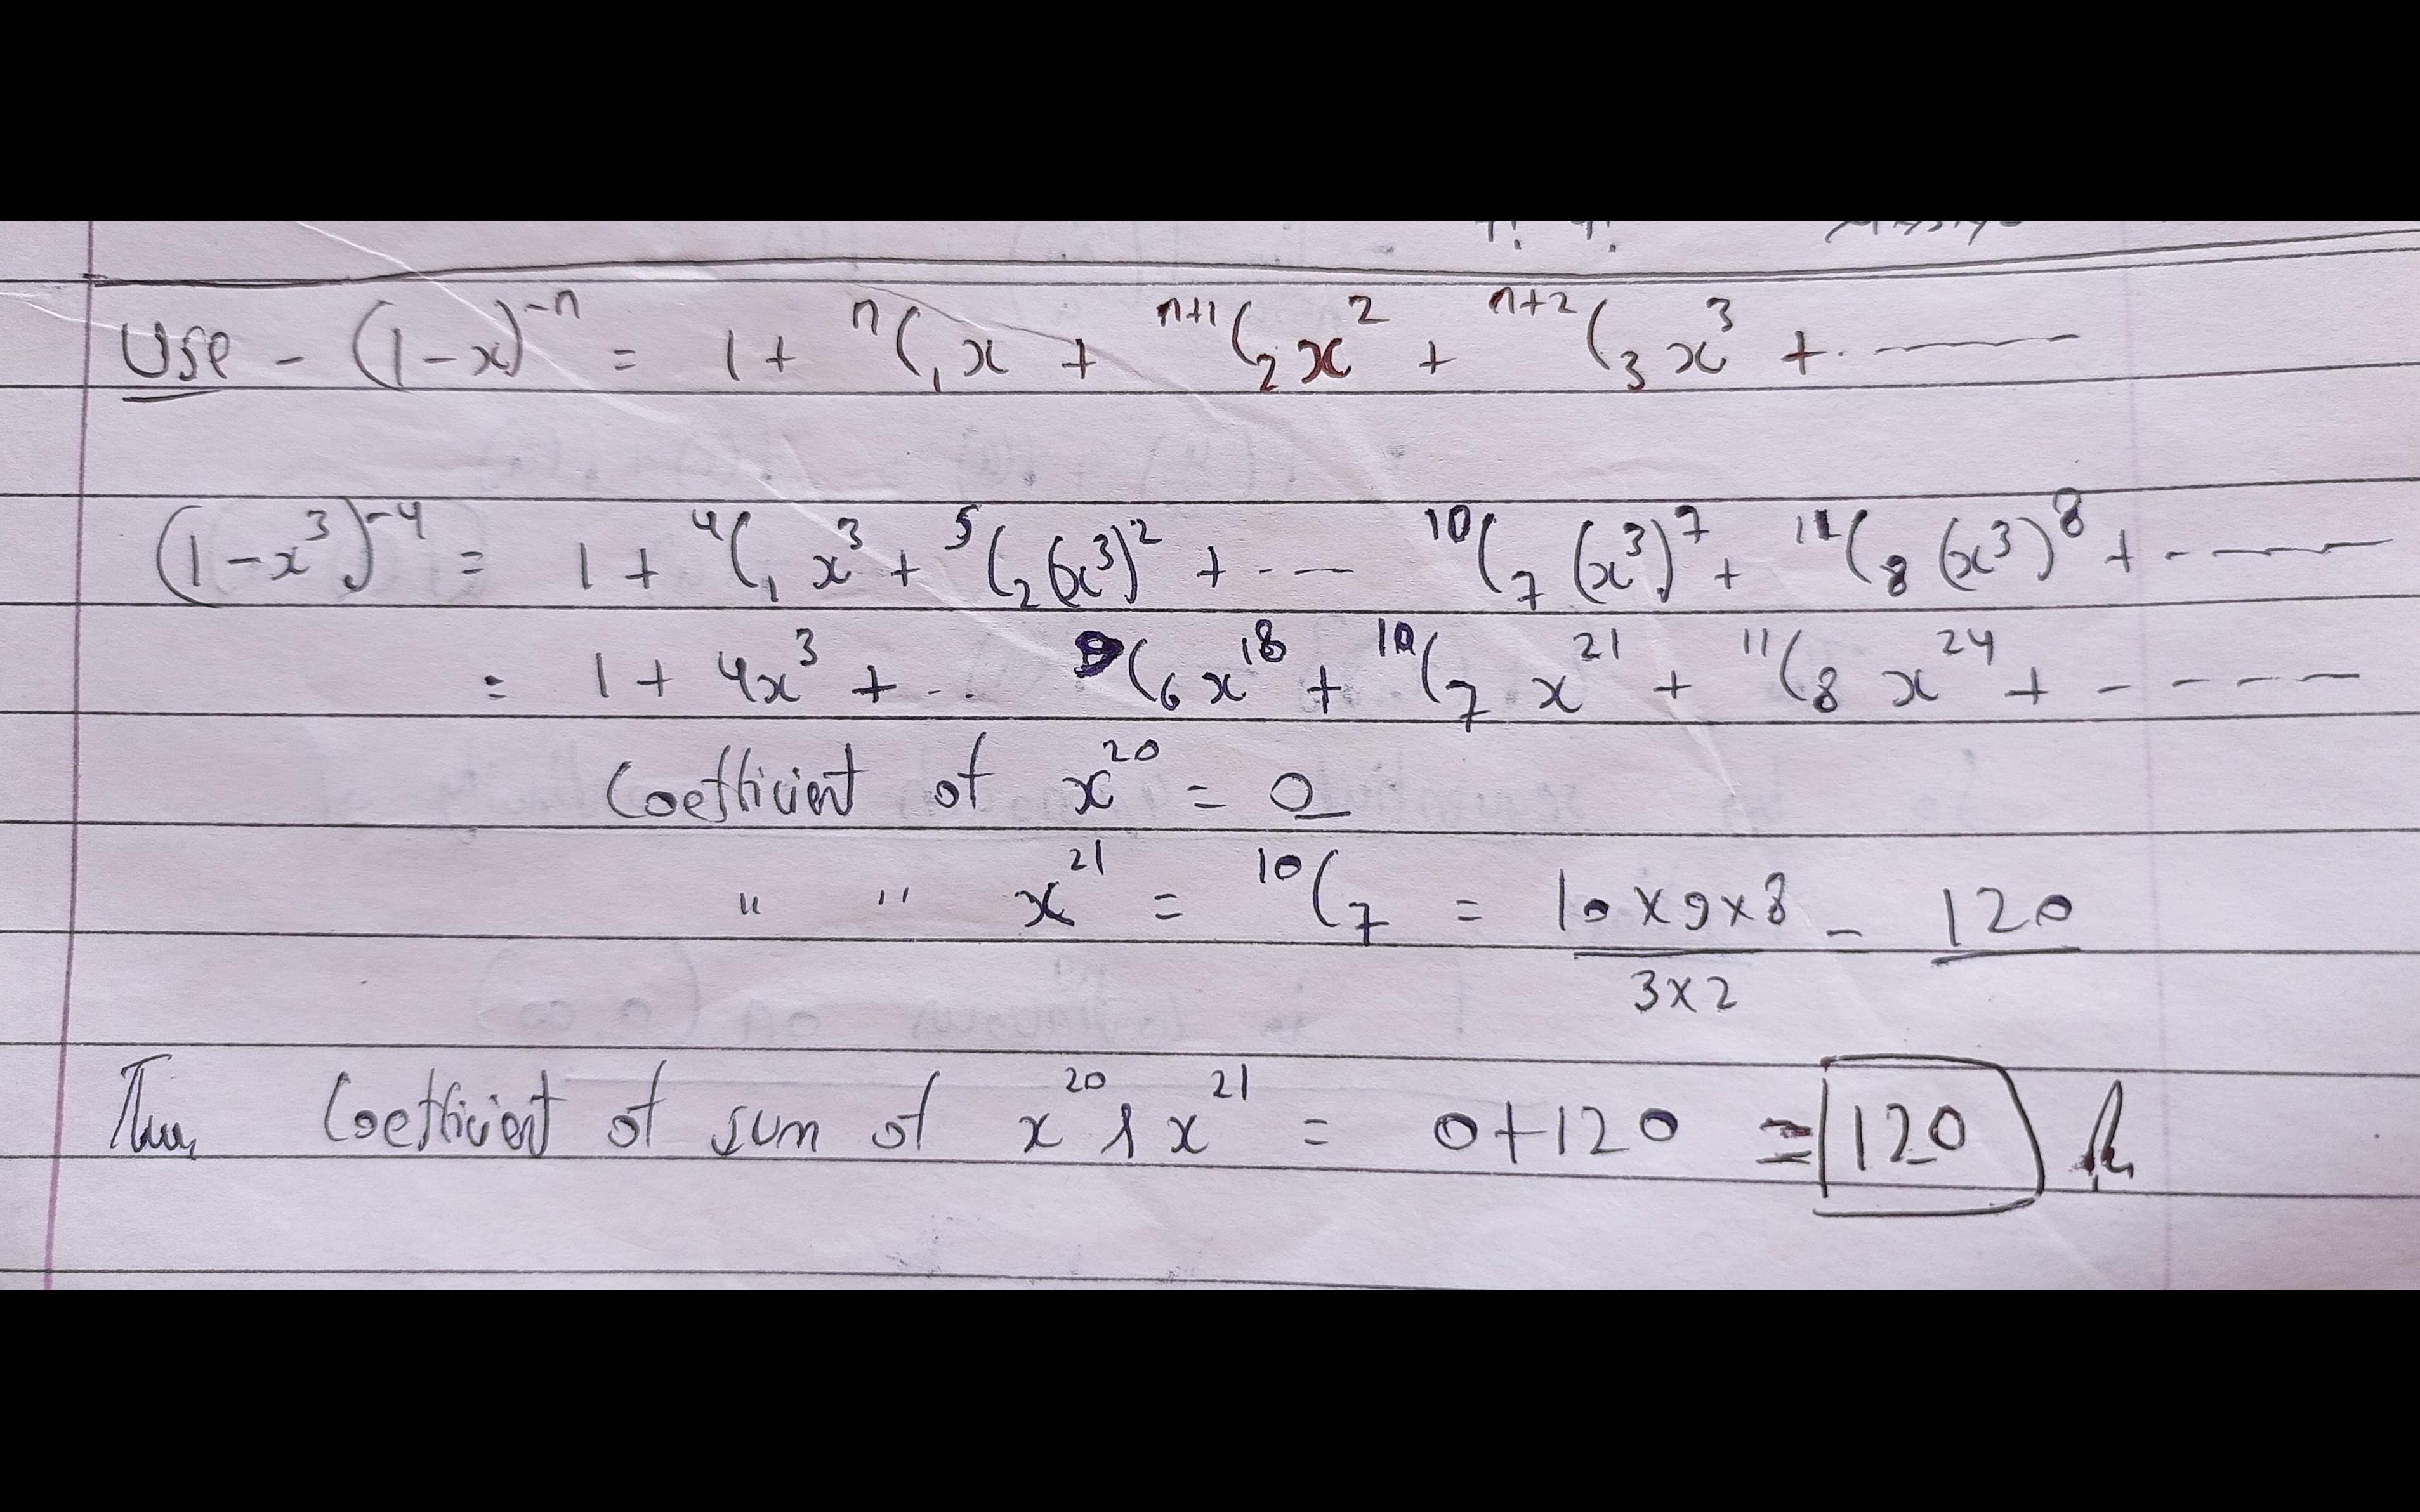 Use - (1-x)^-n = 1 + ^nC_1 x + ^n+1C_2 x^2 + ^n+2C_3 x^3 + ------
(1-x^3)^-4 = 1 + ^4C_1 x^3 + ^5C_2 (x^3)^2 + ---- ^10C_7 (x^3)^7 + ^11C_8 (x^3)^8 + ------
= 1 + 4x^3 + .. ^9C_6 x^18 + ^10C_7 x^21 + ^11C_8 x^24 + - - - -
Coefficient of x^20 = 0
" " x^21 = ^10C_7 = 10×9×8/3×2 - 120
Thus Coefficient of sum of x^20 & x^21 = 0+120 = 120